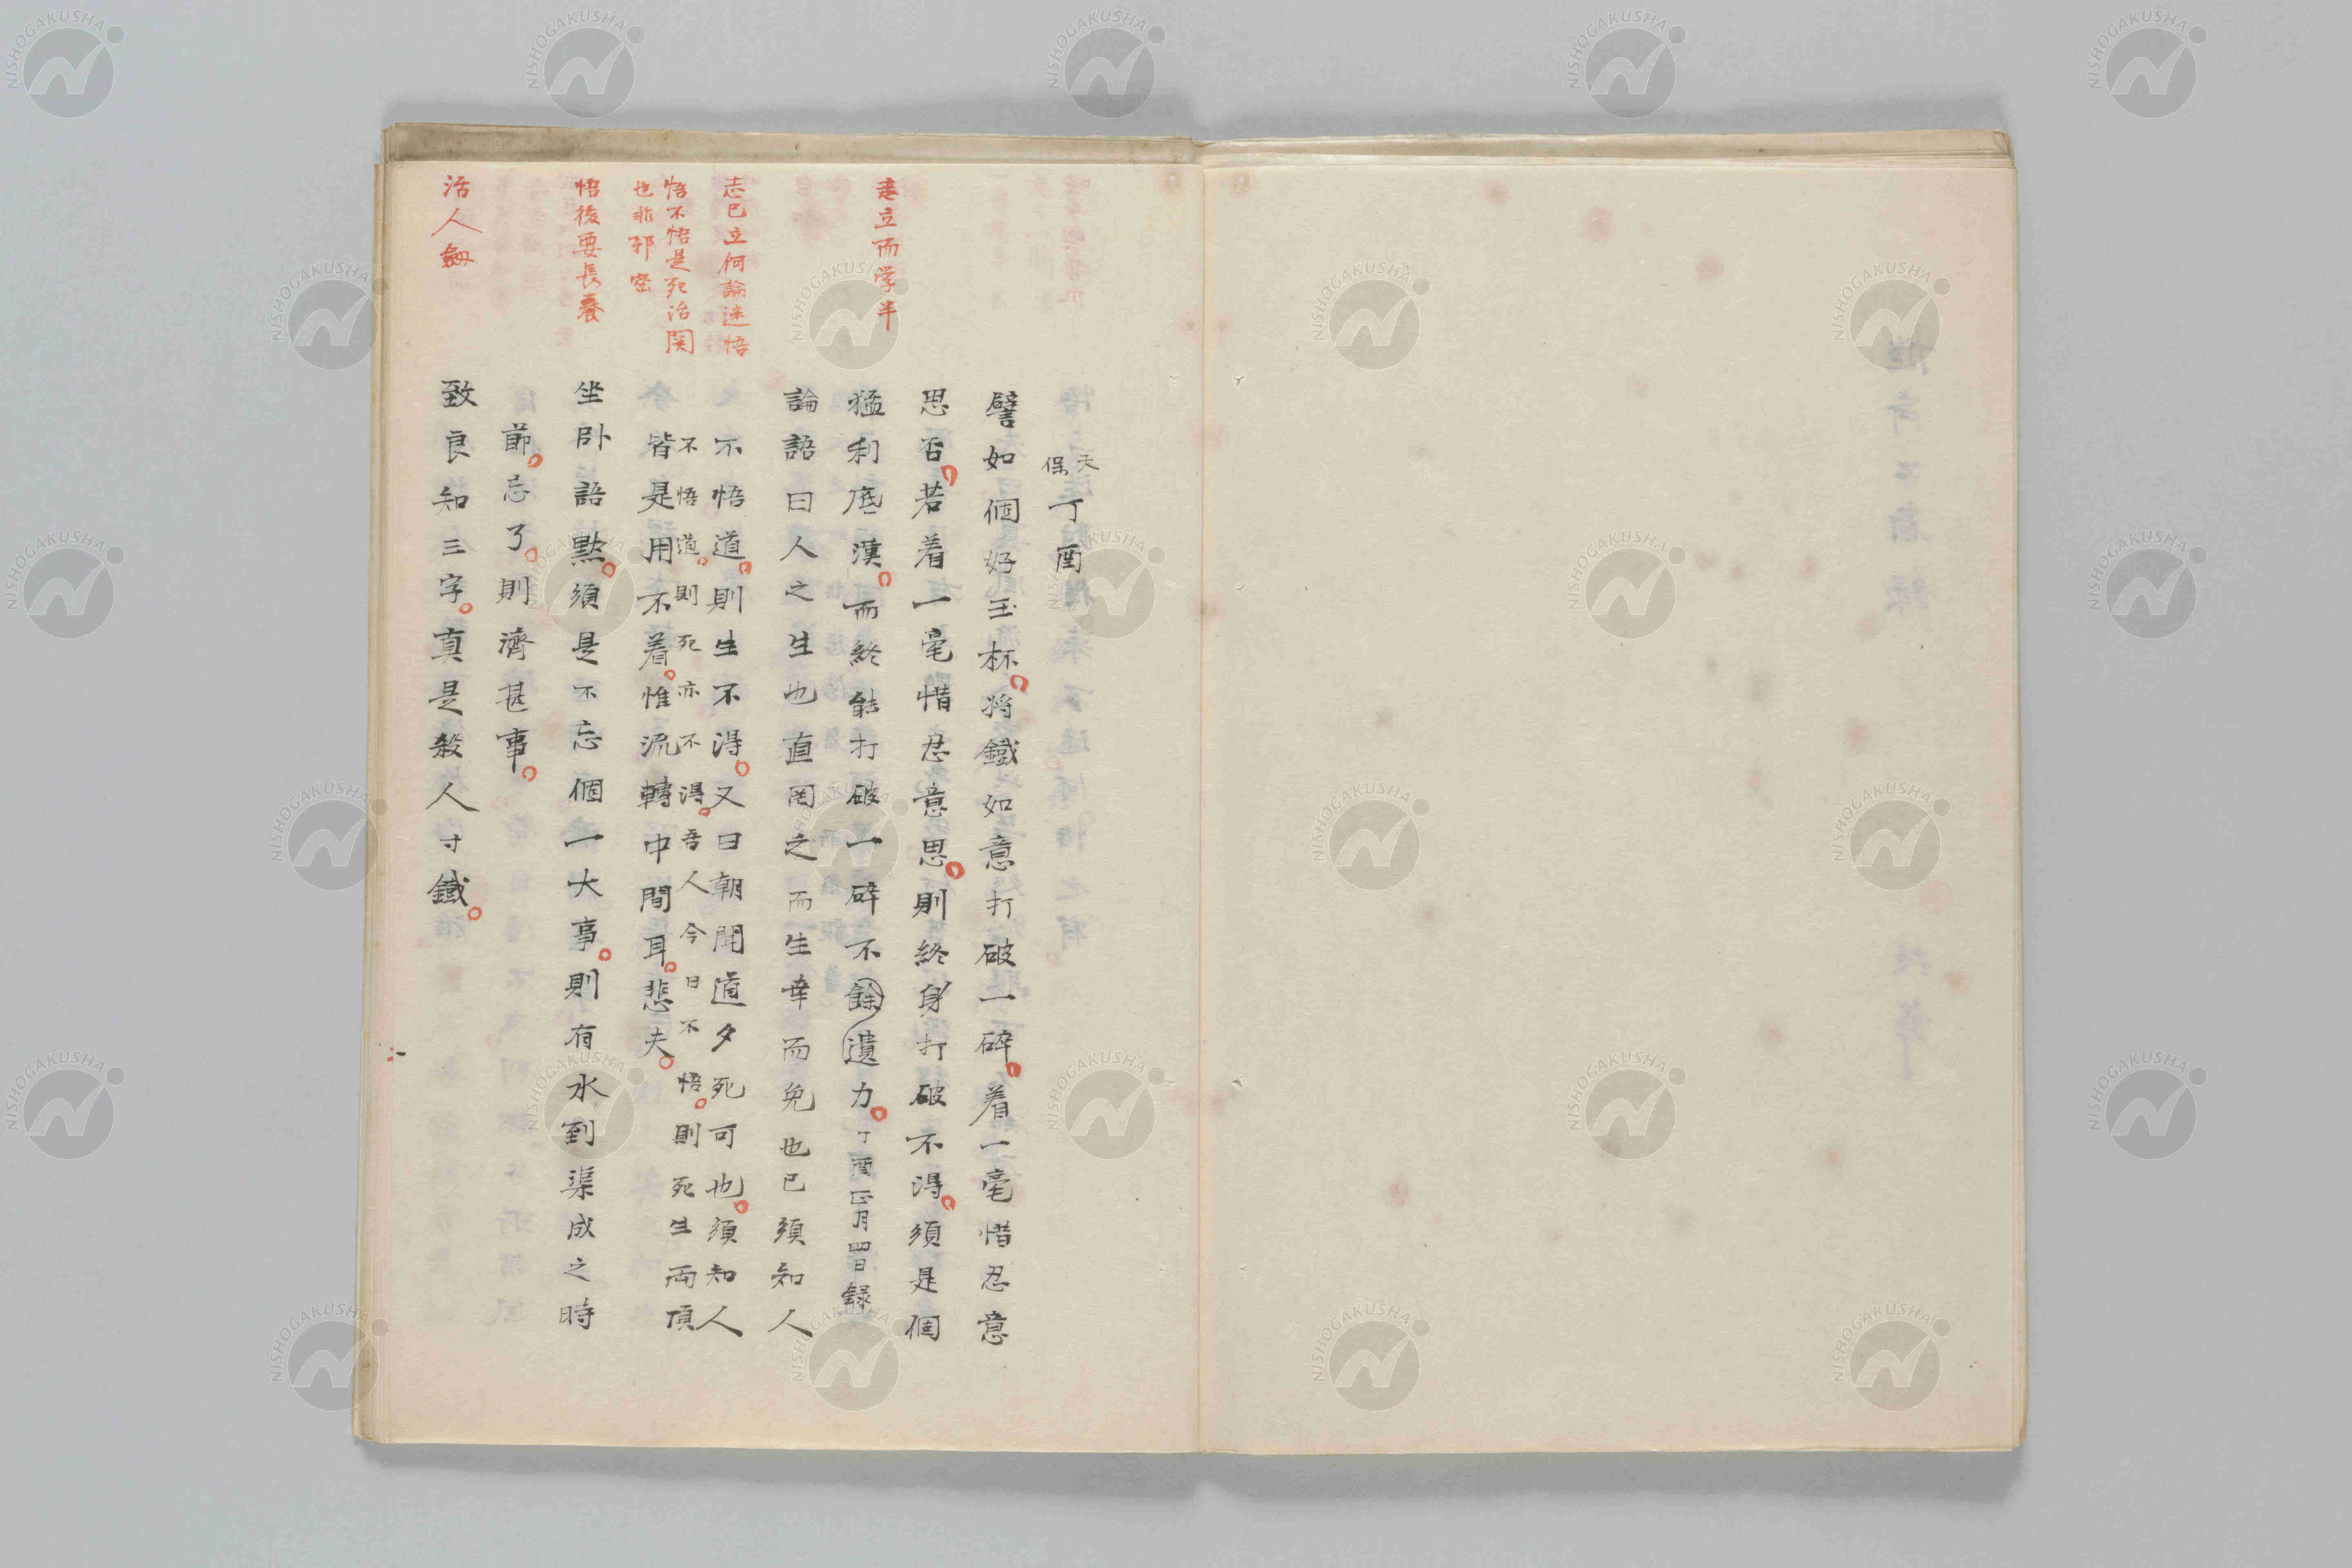 天保丁酉
譬如個好玉杯將鐵如意打破一碎着一毫惜忍意
思否若着一毫惜忍意思則終身打破不得須是個
志立而学半
猛利底漢而終能打破一碎不餘遺力丁酉正月四日録
論語曰人之生也直罔之而生幸而免也已須知人
志已立何論迷悟
不悟道則生不得又曰朝聞道夕死可也須知人
悟不悟是死活関
不悟道則死亦不得吾人今日不悟則死生両頂
也非邪密
皆是用不着惟流轉中間耳悲夫
悟後要長養
坐卧語黙須是不忘個一大事則有水到渠成之時
節忘了則濟甚事
活人劔
致良知三字真是殺人寸鐵
NISHOGAKUSHA